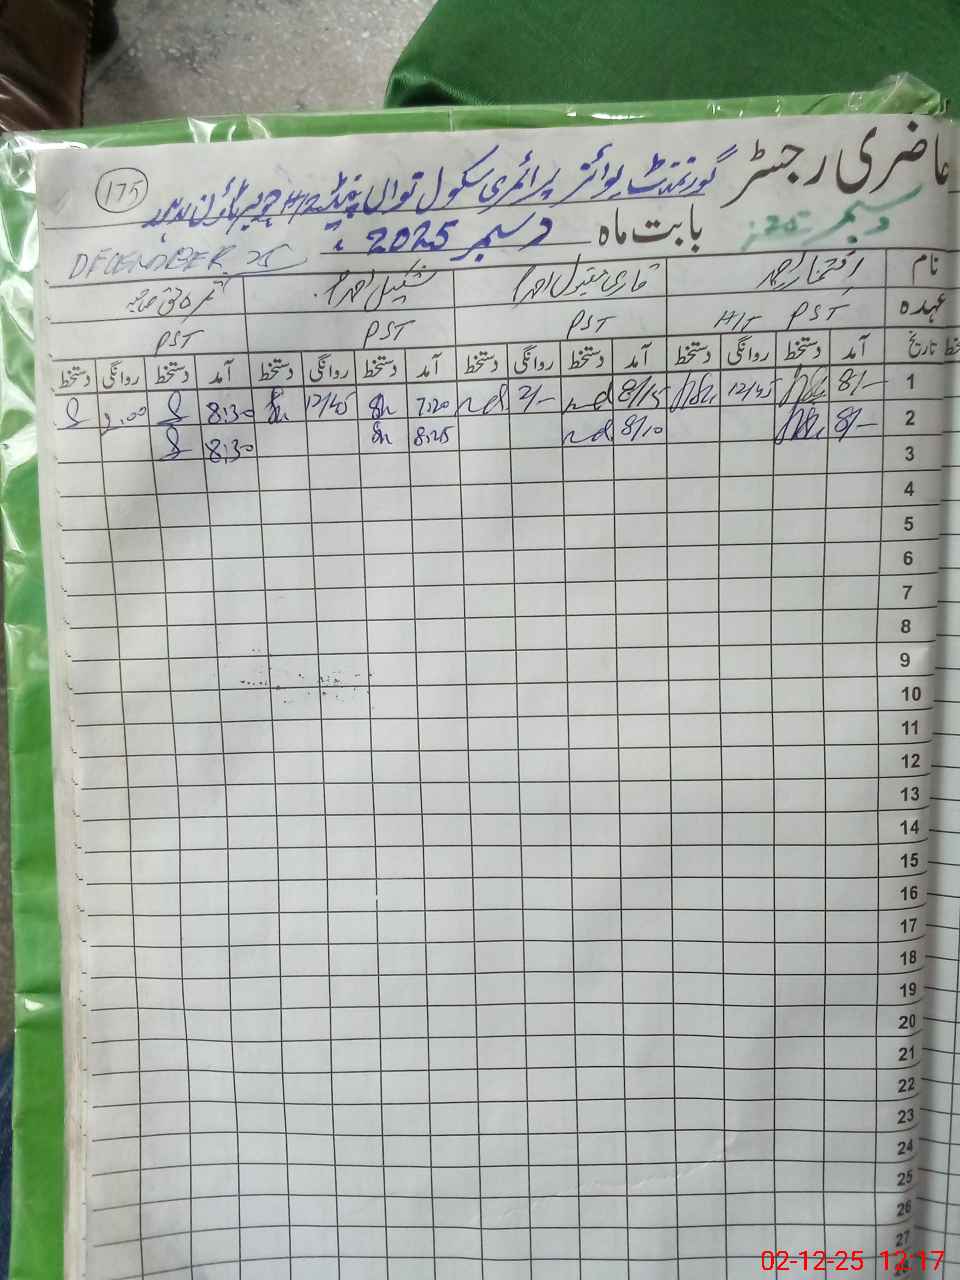 حاضری رجسٹر
175
گورنمنٹ بوائز پرائمری سکول
بابت ماہ دسمبر 2025ء
دسمبر 25ء
DECEMBER 25
نام افتخار احمد قاری مقبول احمد شکیل احمد
عہدہ H/T PST PST PST PST
تاریخ آمد دستخط روانگی دستخط آمد دستخط روانگی دستخط آمد دستخط روانگی دستخط آمد دستخط روانگی دستخط
1 8/- 12/45 8/15 2/- 7:20 12/45 8:30 2:00
2 8/- 8/10 8:25 8:30
3
4
5
6
7
8
9
10
11
12
13
14
15
16
17
18
19
20
21
22
23
24
25
26
27
02-12-25 12:17